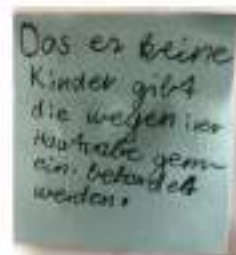 Das es keine
Kinder gibt
die wegen irer
Hautfarbe gem-
ein behandelt
werden.